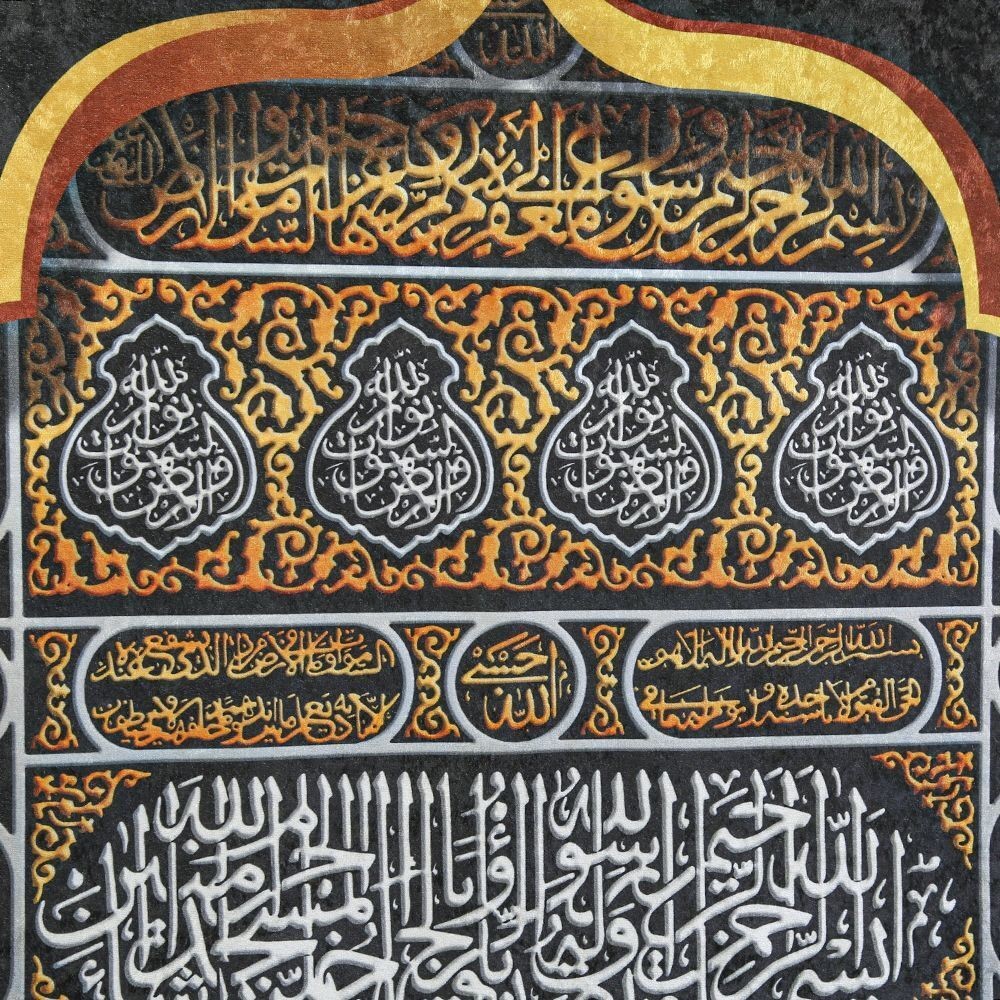 الله
بسم الله الرحمن الرحيم وسارعوا إلى مغفرة من ربكم وجنة عرضها السموات والأرض
الله نور السموات والأرض
الله نور السموات والأرض
الله نور السموات والأرض
الله نور السموات والأرض
بسم الله الرحمن الرحيم الله لا إله إلا هو
الحي القيوم لا تأخذه سنة ولا نوم له ما في
حسبي الله
السموات وما في الأرض من ذا الذي يشفع عنده
إلا بإذنه يعلم ما بين أيديهم وما خلفهم ولا يحيطون
بسم الله الرحمن الرحيم الله رسوله الرؤيا بالحق المسجد الحرام شاء الله آمنين